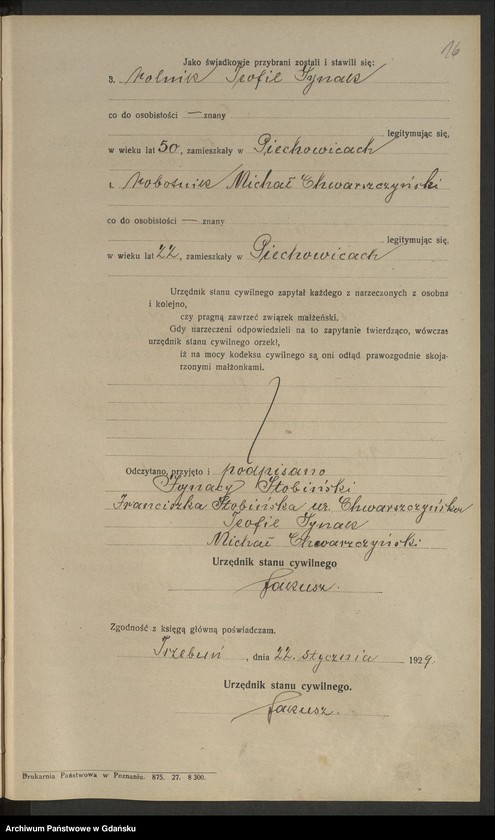 16
Jako świadkowie przybrani zostali i stawili się:
3. Rolnik Teofil Tynak
co do osobistości — znany
legitymując się,
w wieku lat 50, zamieszkały w Piechowicach
4. Robotnik Michał Chwarszczyński
co do osobistości — znany
legitymując się,
w wieku lat 22, zamieszkały w Piechowicach
Urzędnik stanu cywilnego zapytał każdego z narzeczonych z osobna
i kolejno,
czy pragną zawrzeć związek małżeński.
Gdy narzeczeni odpowiedzieli na to zapytanie twierdząco, wówczas
urzędnik stanu cywilnego orzekł,
iż na mocy kodeksu cywilnego są oni odtąd prawozgodnie skoja-
rzonymi małżonkami.
Odczytano, przyjęto i podpisano
Ignacy Słobiński
Franciszka Słobińska ur. Chwarszczyńska
Teofil Tynak
Michał Chwarczyński
Urzędnik stanu cywilnego
Jakusz.
Zgodność z księgą główną poświadczam.
Trzebuń, dnia 22. stycznia 1929.
Urzędnik stanu cywilnego.
Jakusz.
Drukarnia Państwowa w Poznaniu. 875. 27. 8 300.
Archiwum Państwowe w Gdańsku